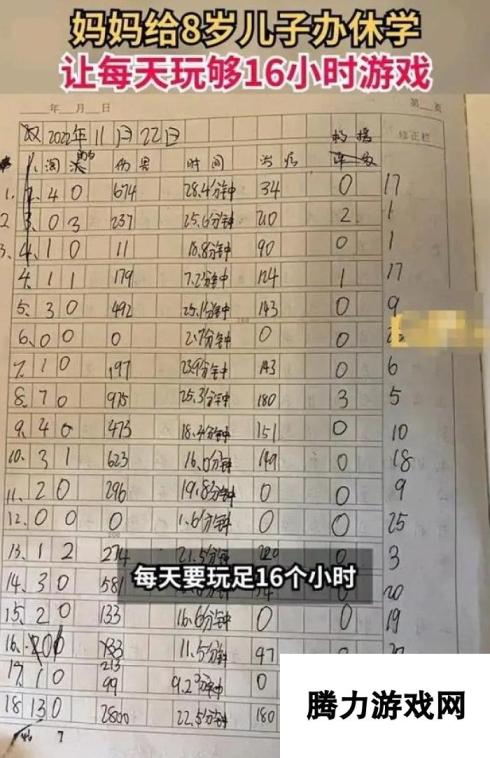 妈妈给8岁儿子办休学
让每天玩够16小时游戏
年 月 日 第 页
2022年11月22日 修正栏
淘汰 伤害 时间 治疗
1. 2. 4 0 674 28.4分钟 34 0 17
2 3. 0 3 237 25.6分钟 210 2 1
3. 4. 1 0 11 10.8分钟 90 0 1
4. 1 1 179 7.2分钟 124 1 17
5. 3 0 492 25.1分钟 143 0 9
6. 0 0 0 2.7分钟 0 0
7. 1 0 197 23.9分钟 143 0 6
8. 7 0 975 25.3分钟 180 3 5
9. 4 0 473 18.4分钟 151 0 10
10. 3 1 623 16.0分钟 149 0 18
11. 2 0 296 19.8分钟 0 0 9
12. 0 0 0 1.6分钟 0 0 25
13. 1 2 274 21.5分钟 0 3
每天要玩足16个小时
14. 3 0 581 0 20
15. 2 0 133 16.6分钟 0 0 19
16. 11.5分钟 97
17. 1 0 213 99 9.2分钟 0
18. 13 0 2800 22.5分钟 180
腾力游戏网